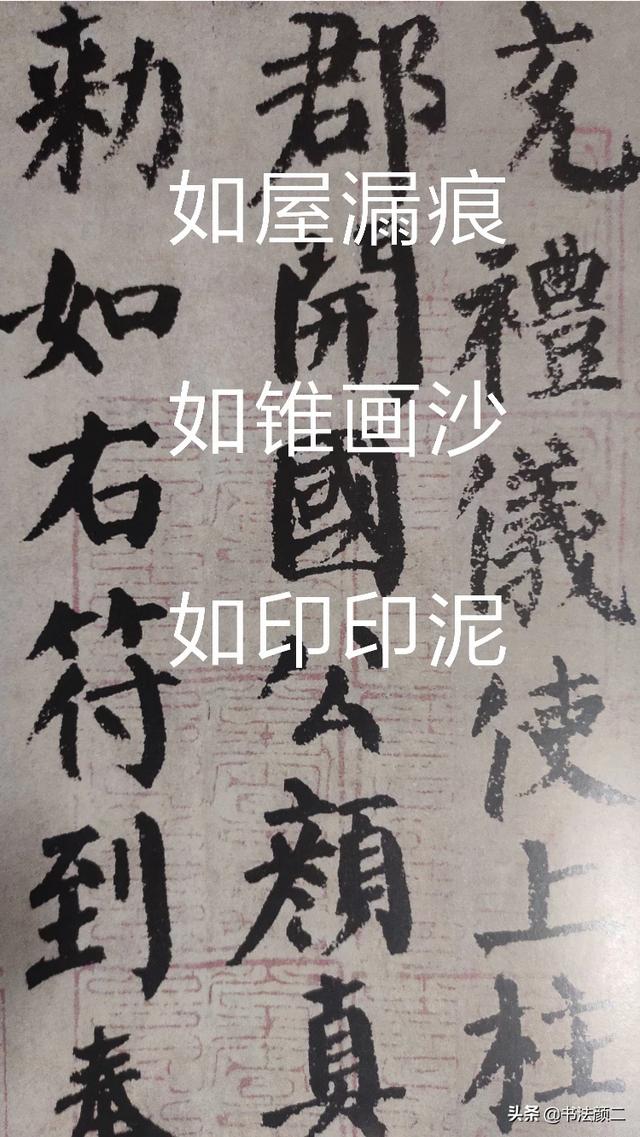 如屋漏痕
如锥画沙
如印印泥
充禮儀使上柱
郡開國公顏真
勅如右符到奉
头条 @书法颜二